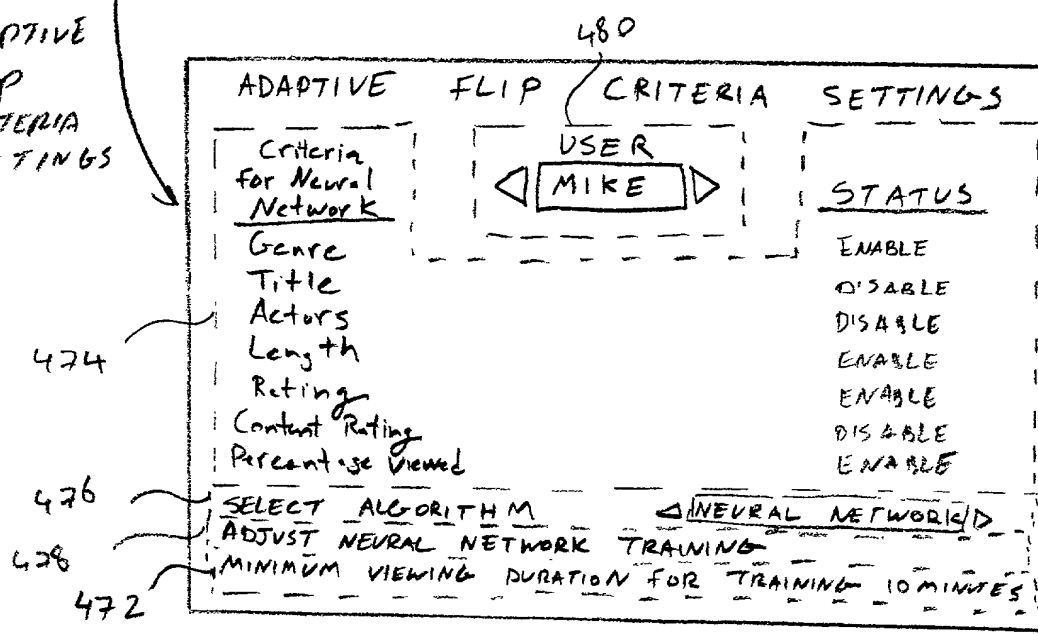 480
ADAPTIVE FLIP CRITERIA SETTINGS
Criteria
for Neural
Network
USER
MIKE
STATUS
Genre ENABLE
Title DISABLE
Actors DISABLE
Length ENABLE
Rating ENABLE
Content Rating DISABLE
Percentage Viewed ENABLE
474
476 SELECT ALGORITHM NEURAL NETWORK
478 ADJUST NEURAL NETWORK TRAINING
472 MINIMUM VIEWING DURATION FOR TRAINING 10 MINUTES